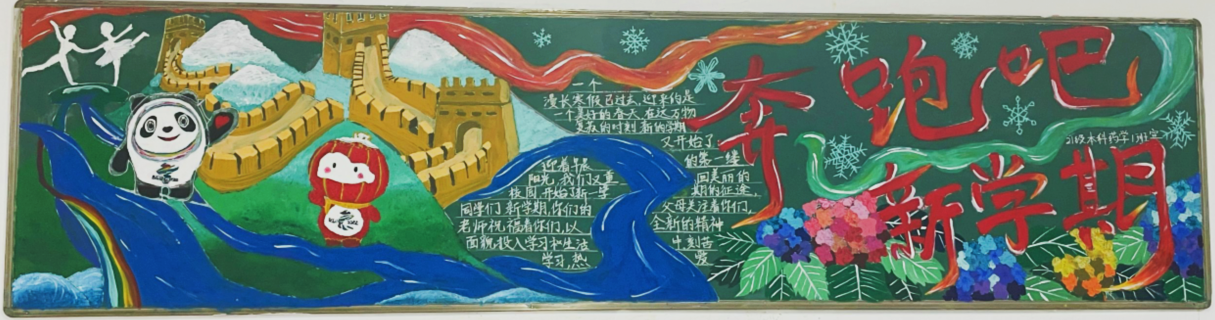 奔跑吧
新学期
21级本科药学1班宣
一个
漫长寒假已过去,迎来的是
一个美好的春天,在这万物
复苏的时刻新的学期
又开始了
迎着午晨 的第一缕
阳光,我们又重 回美丽的
校园,开始了新一学 期的征途。
同学们新学期,你们的 父母关注着你们,
老师祝福着你们,以 全新的精神
面貌投入学习和生活 中刻苦
学习,热 爱